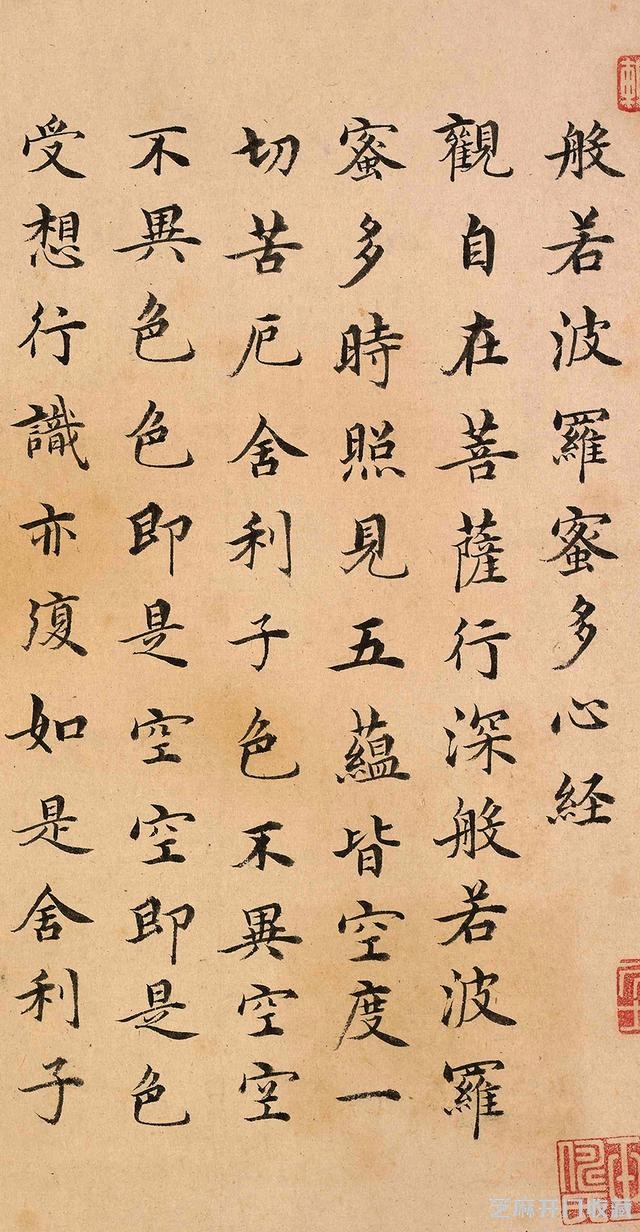 般若波羅蜜多心経
觀自在菩薩行深般若波羅
蜜多時照見五蘊皆空度一
切苦厄舍利子色不異空空
不異色色即是空空即是色
受想行識亦復如是舍利子